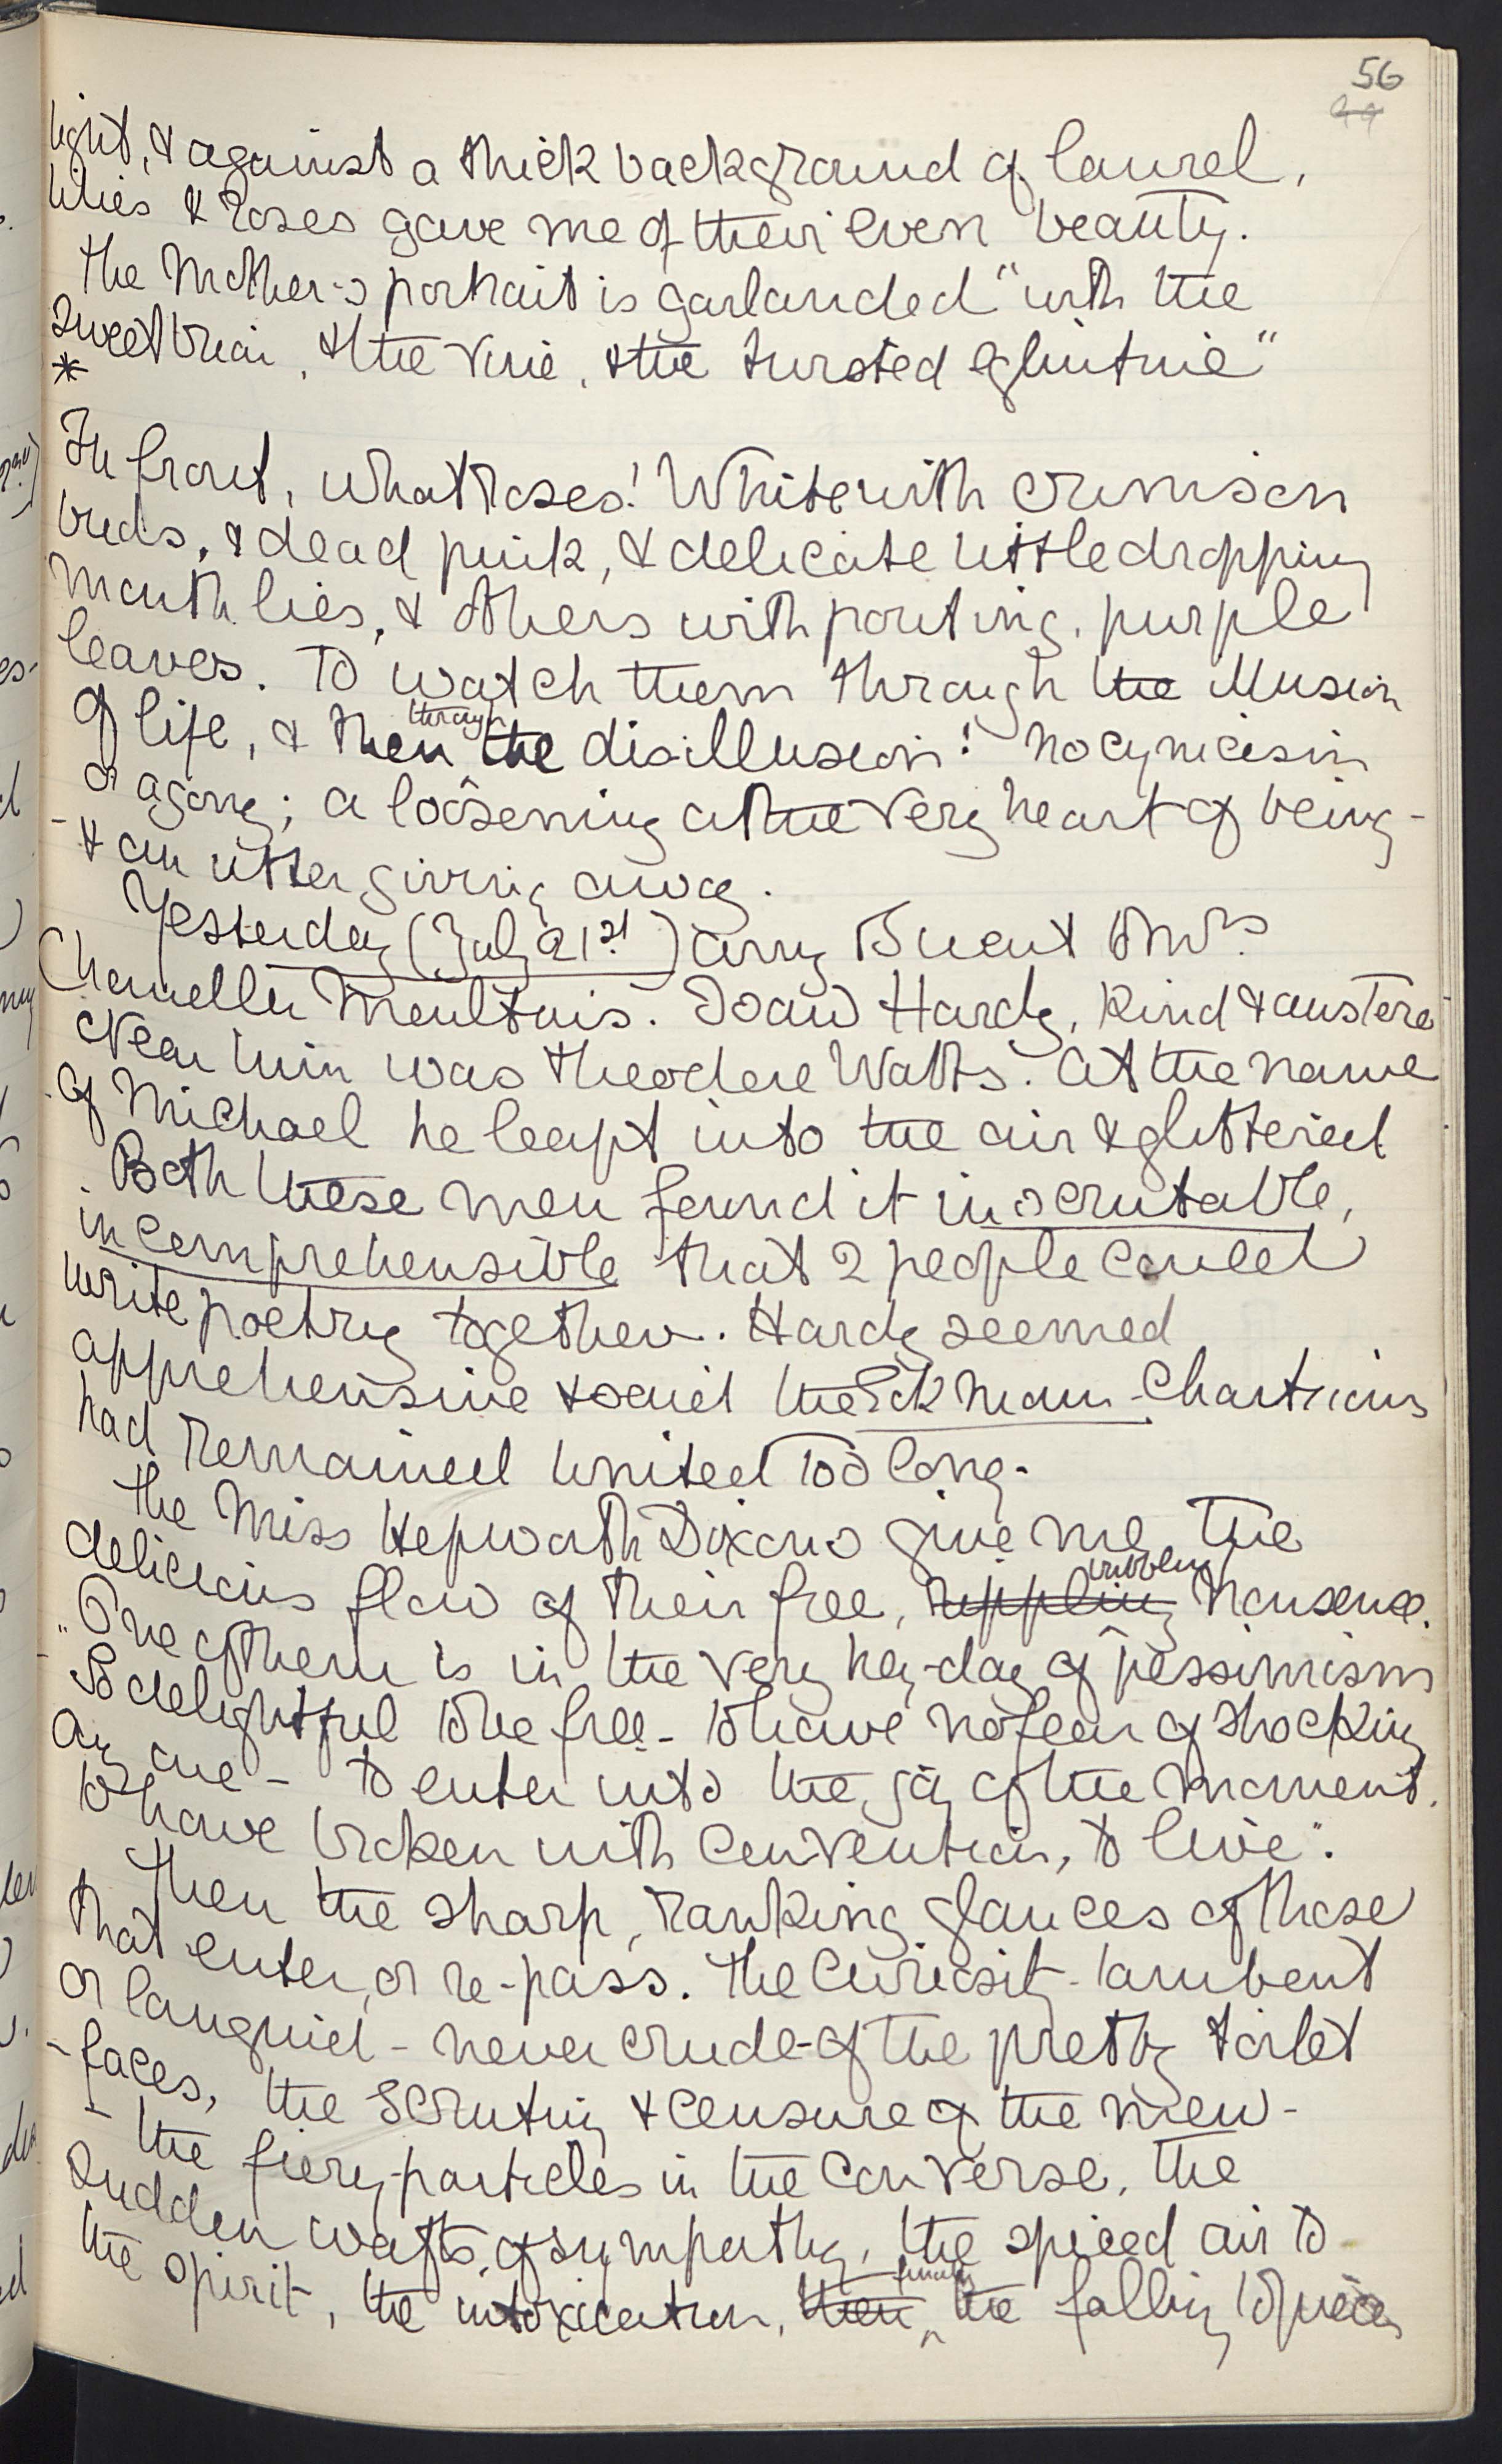 56
light, & against a thick background of laurel,
lilies & roses gave me of their even beauty.
The Mother's portrait is garlanded "with the
Sweetbriar, & the vine, & the twisted eglintine"
*
In front, what roses! White with crimson
buds, & dead pink, & delicate little dropping
monthlies, & others with pouting, purple
leaves. To watch them through the illusion
of life, & then through the disillusion! no cynicism
or agony; a loosening at the very heart of being -
& an utter giving away.
Yesterday (July 21st) Amy & I went to Mrs
Chandler Moulton's. I saw Hardy, kind & austere
Near him was Theodore Watts. At the name
of Michael he leapt into the air & glittered
Both these men found it inscrutable,
incomprehensible that 2 people could
write poetry together. Hardy seemed
apprehensive & said the Erckmann-Chartrians
had remained united too long.
The Miss Hepworth Dixons give me the
delicious flow of their free, rippling bubbling nonsense.
One of them is in the very hey-day of pessimism
"So delightful to be free - to have no fear of shocking
any one - to enter into the joy of the moment.
to have broken with convention, to live".
Then the sharp, ranking glances of those
that enter, or re-pass. The curiosity - lambent
or languid - never crude - of the pretty toilet
faces, the scrutiny & censure of the men -
the fiery particles in the converse, the
Sudden wafts of sympathy, the spiced air to
the spirit, the intoxication, then finally the falling to pieces